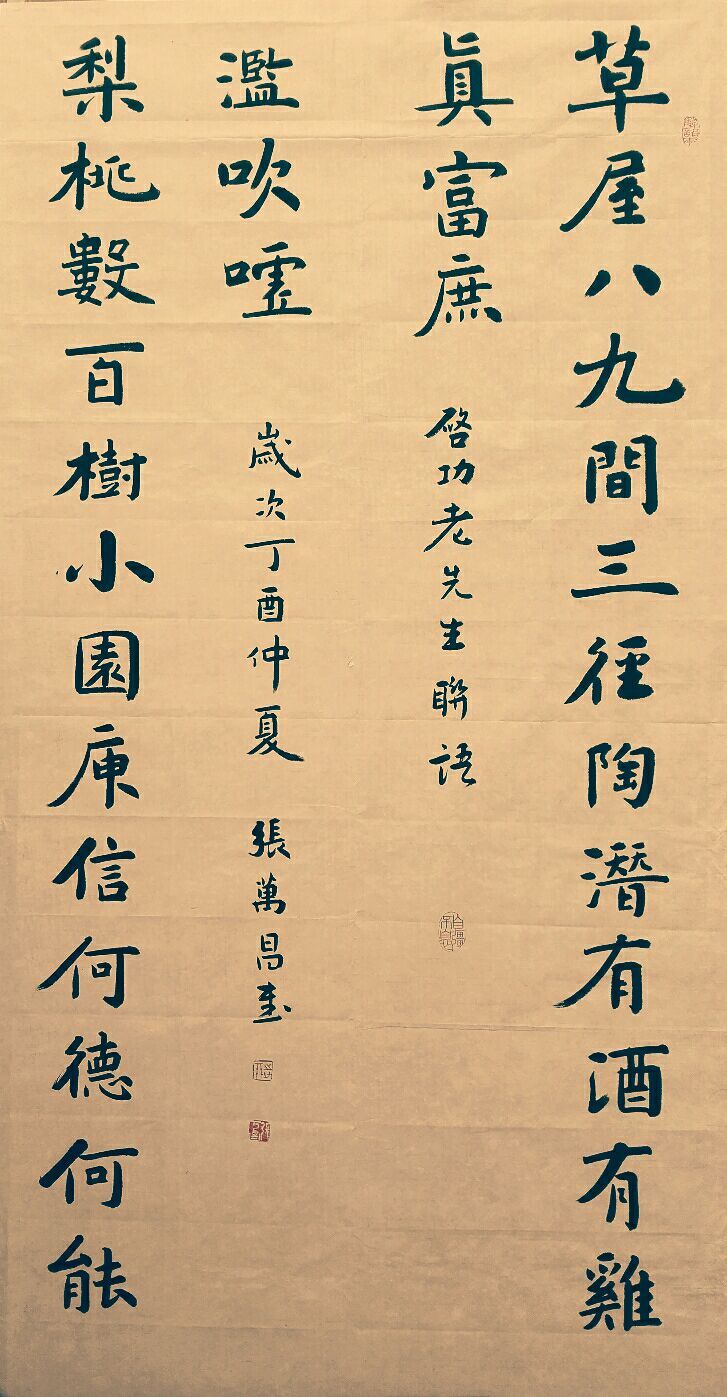 草屋八九間三徑陶潛有酒有雞
眞富庶
啓功老先生聯語
梨桃數百樹小園庾信何德何能
濫吹噓
歲次丁酉仲夏 張萬昌書